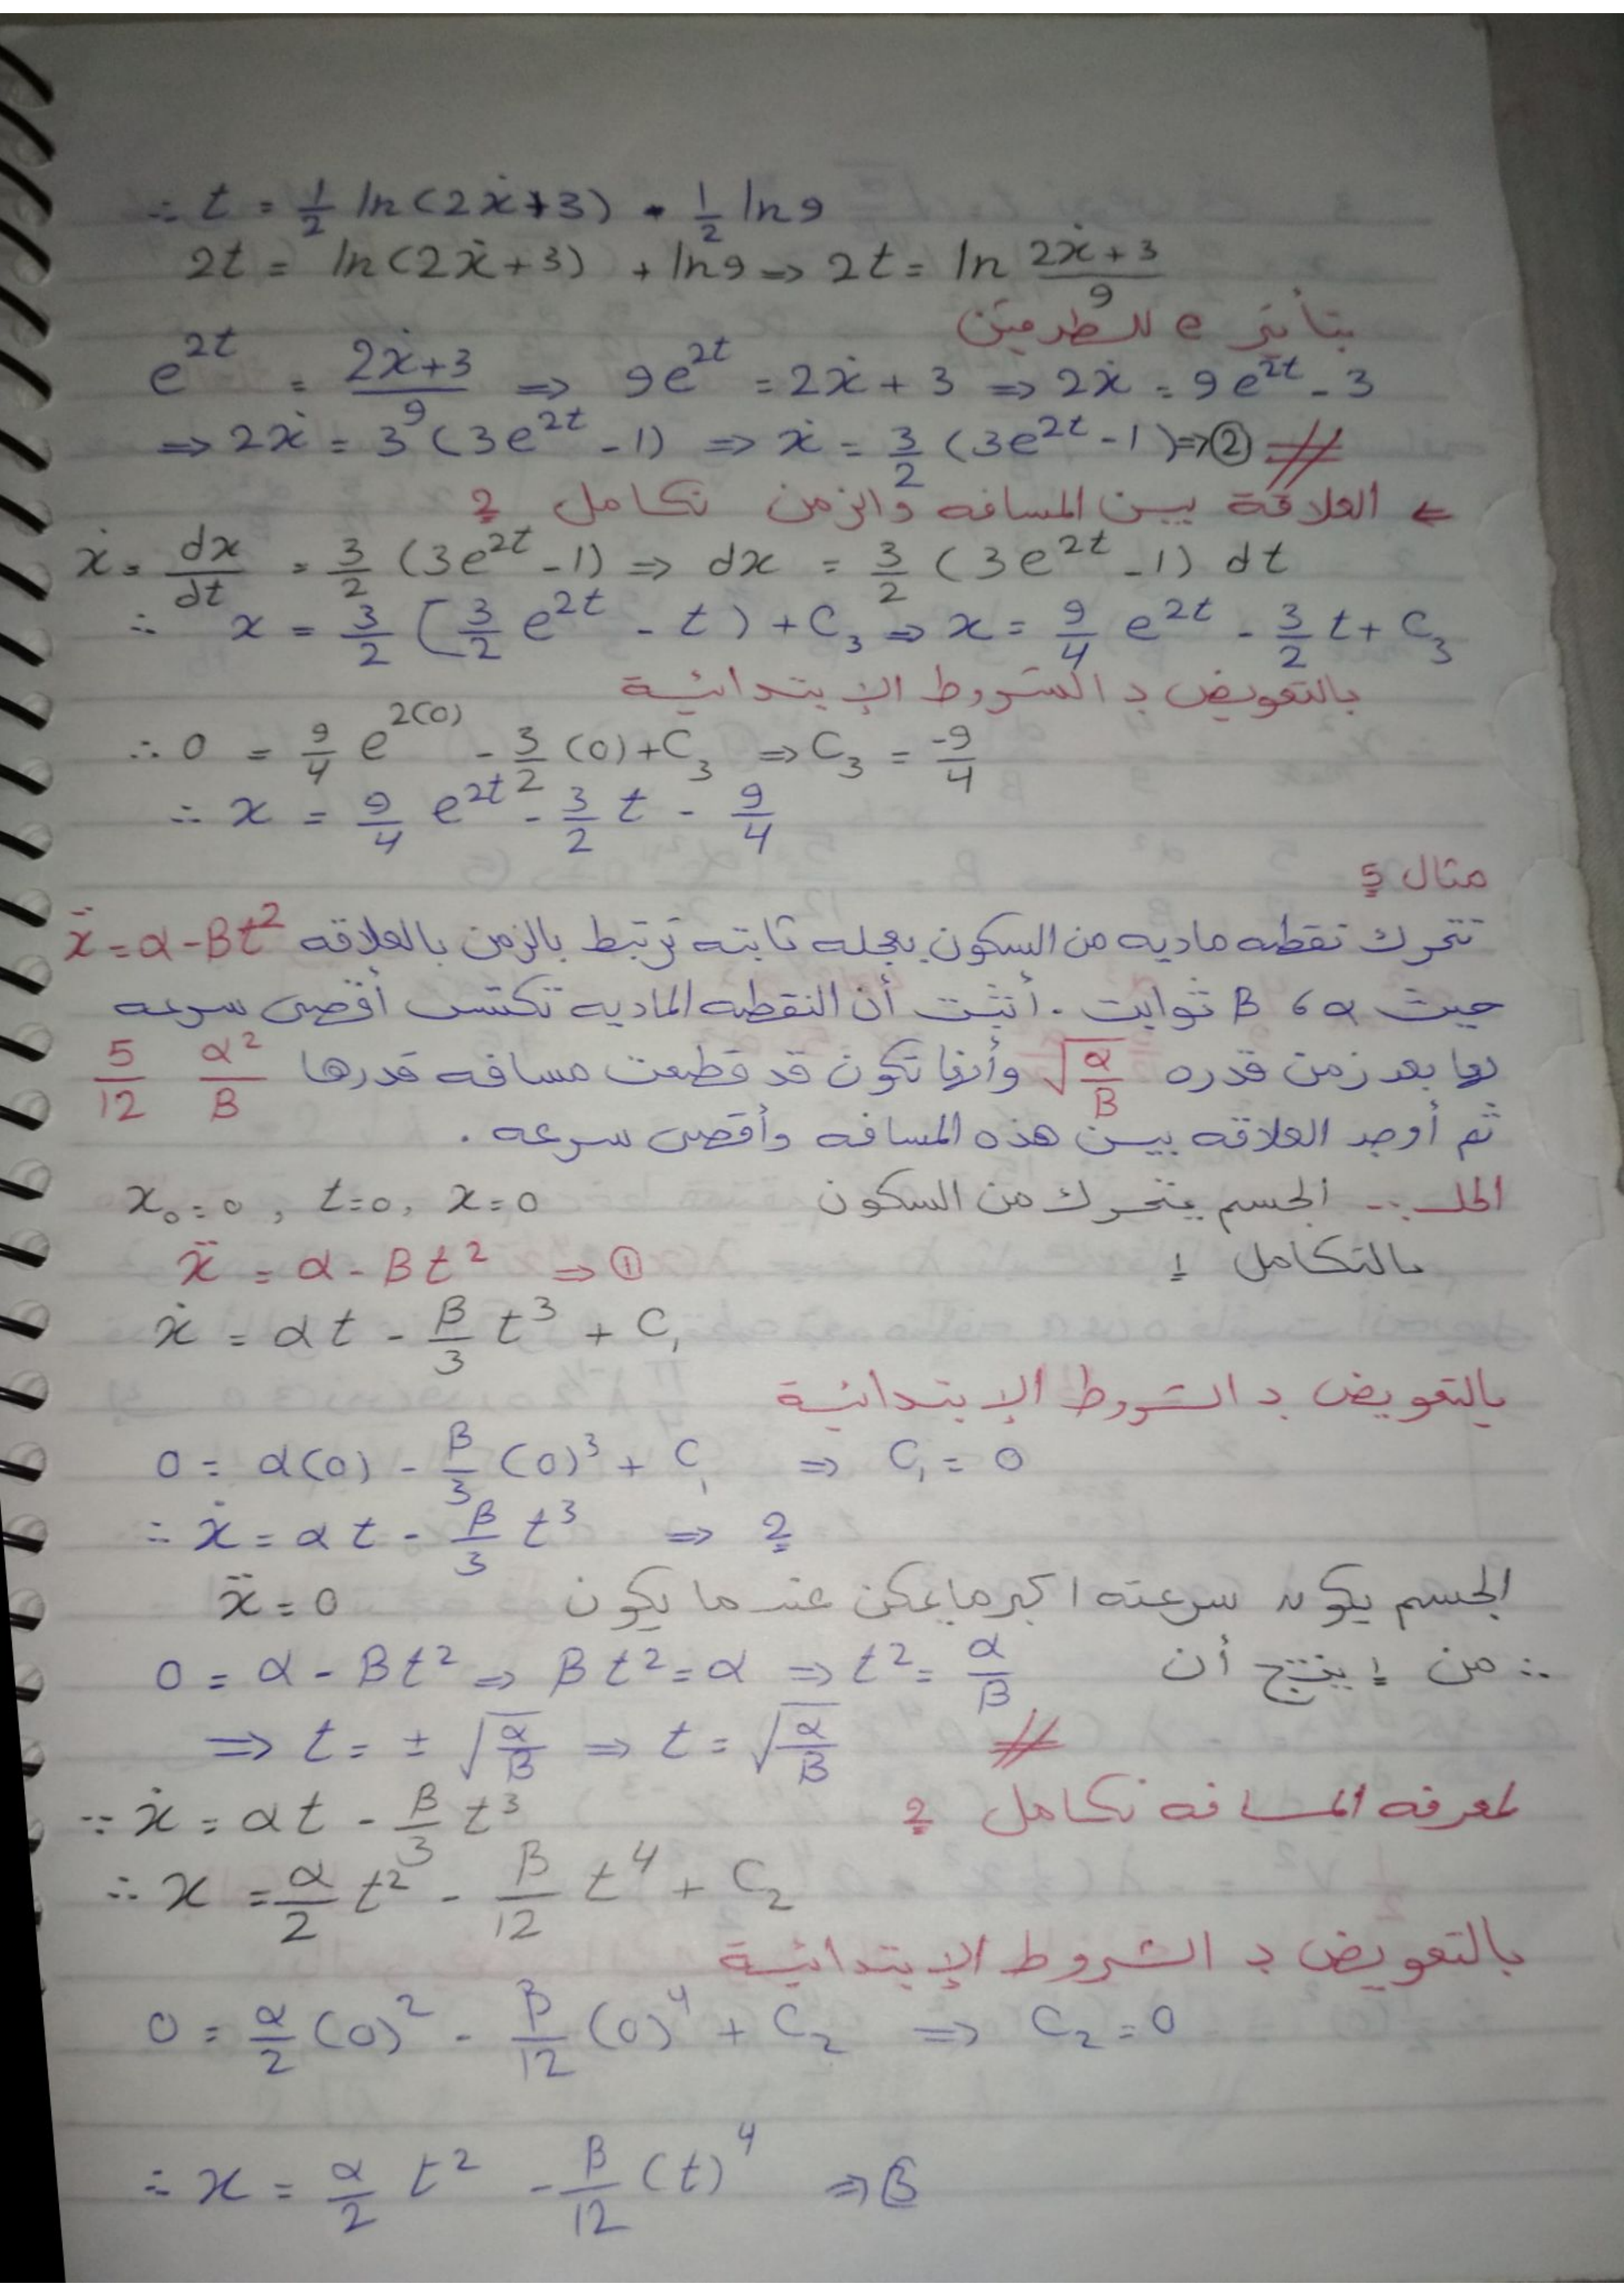 ∴ t = 1/2 ln(2ẋ+3) - 1/2 ln9
2t = ln(2ẋ+3) + ln9 ⇒ 2t = ln (2ẋ+3)/9
بتأثير e للطرفين
e^2t = (2ẋ+3)/9 ⇒ 9e^2t = 2ẋ + 3 ⇒ 2ẋ = 9e^2t - 3
⇒ 2ẋ = 3(3e^2t - 1) ⇒ ẋ = 3/2 (3e^2t - 1) ⇒ ②
← العلاقة بين المسافه والزمن نكامل 2
ẋ = dx/dt = 3/2 (3e^2t - 1) ⇒ dx = 3/2 (3e^2t - 1) dt
∴ x = 3/2 [3/2 e^2t - t) + C₃ ⇒ x = 9/4 e^2t - 3/2 t + C₃
بالتعويض بـ الشروط الإبتدائية
∴ 0 = 9/4 e^2(0) - 3/2 (0) + C₃ ⇒ C₃ = -9/4
∴ x = 9/4 e^2t - 3/2 t - 9/4
مثال 5
تتحرك نقطه ماديه من السكون بعجله ثابته ترتبط بالزمن بالعلاقه ẍ = α - βt²
حيث α ، β ثوابت . أثبت أن النقطه الماديه تكتسب أقصى سرعه
لها بعد زمن قدره √(α/β) وأنها تكون قد قطعت مسافه قدرها 5/12 α²/β
ثم أوجد العلاقه بين هذه المسافه وأقصى سرعه .
الحل :- الجسم يتحرك من السكون x₀ = 0 , t = 0 , x = 0
بالتكامل 1 ẍ = α - βt² ⇒ ①
ẋ = αt - β/3 t³ + C₁
بالتعويض بـ الشروط الإبتدائية
0 = α(0) - β/3 (0)³ + C₁ ⇒ C₁ = 0
∴ ẋ = αt - β/3 t³ ⇒ 2
الجسم يكون سرعته اكبر مايمكن عندما يكون ẍ = 0
∴ من 1 ينتج أن 0 = α - βt² ⇒ βt² = α ⇒ t² = α/β
⇒ t = ± √(α/β) ⇒ t = √(α/β)
لمعرفه المسافه نكامل 2
∵ ẋ = αt - β/3 t³
∴ x = α/2 t² - β/12 t⁴ + C₂
بالتعويض بـ الشروط الإبتدائية
0 = α/2 (0)² - β/12 (0)⁴ + C₂ ⇒ C₂ = 0
∴ x = α/2 t² - β/12 (t)⁴ ⇒ 3